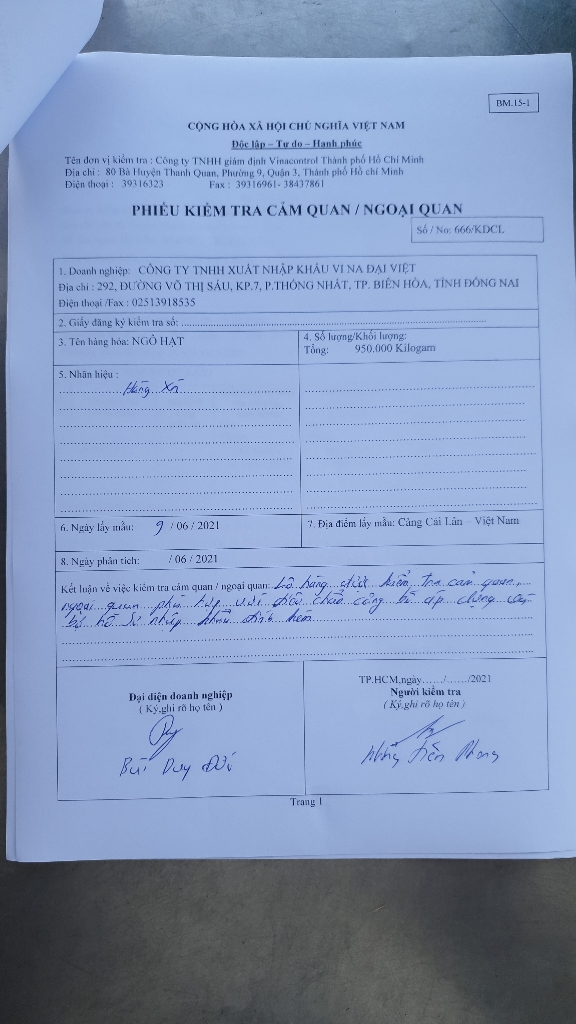 BM.15-1
CỘNG HÒA XÃ HỘI CHỦ NGHĨA VIỆT NAM
Độc lập – Tự do – Hạnh phúc
Tên đơn vị kiểm tra : Công ty TNHH giám định Vinacontrol Thành phố Hồ Chí Minh
Địa chỉ : 80 Bà Huyện Thanh Quan, Phường 9, Quận 3, Thành phố Hồ chí Minh
Điện thoại : 39316323 Fax : 39316961- 38437861
PHIẾU KIỂM TRA CẢM QUAN / NGOẠI QUAN
Số / No: 666/KDCL
1. Doanh nghiệp: CÔNG TY TNHH XUẤT NHẬP KHẨU VI NA ĐẠI VIỆT
Địa chỉ : 292, ĐƯỜNG VÕ THỊ SÁU, KP.7, P.THỐNG NHẤT, TP. BIÊN HÒA, TỈNH ĐỒNG NAI
Điện thoại /Fax : 02513918535
2. Giấy đăng ký kiểm tra số:
3. Tên hàng hóa: NGÔ HẠT
4. Số lượng/Khối lượng:
Tổng: 950.000 Kilogam
5. Nhãn hiệu :
Hàng xá
6. Ngày lấy mẫu: 9 / 06 / 2021
7. Địa điểm lấy mẫu: Cảng Cái Lân – Việt Nam
8. Ngày phân tích: / 06 / 2021
Kết luận về việc kiểm tra cảm quan / ngoại quan: Lô hàng được kiểm tra cảm quan,
ngoại quan phù hợp với tiêu chuẩn công bố áp dụng
bộ hồ sơ nhập khẩu đính kèm
TP.HCM,ngày....../....../2021
Đại diện doanh nghiệp
( Ký,ghi rõ họ tên )
Người kiểm tra
( Ký,ghi rõ họ tên )
Bùi Duy
Tiến Phong
Trang 1